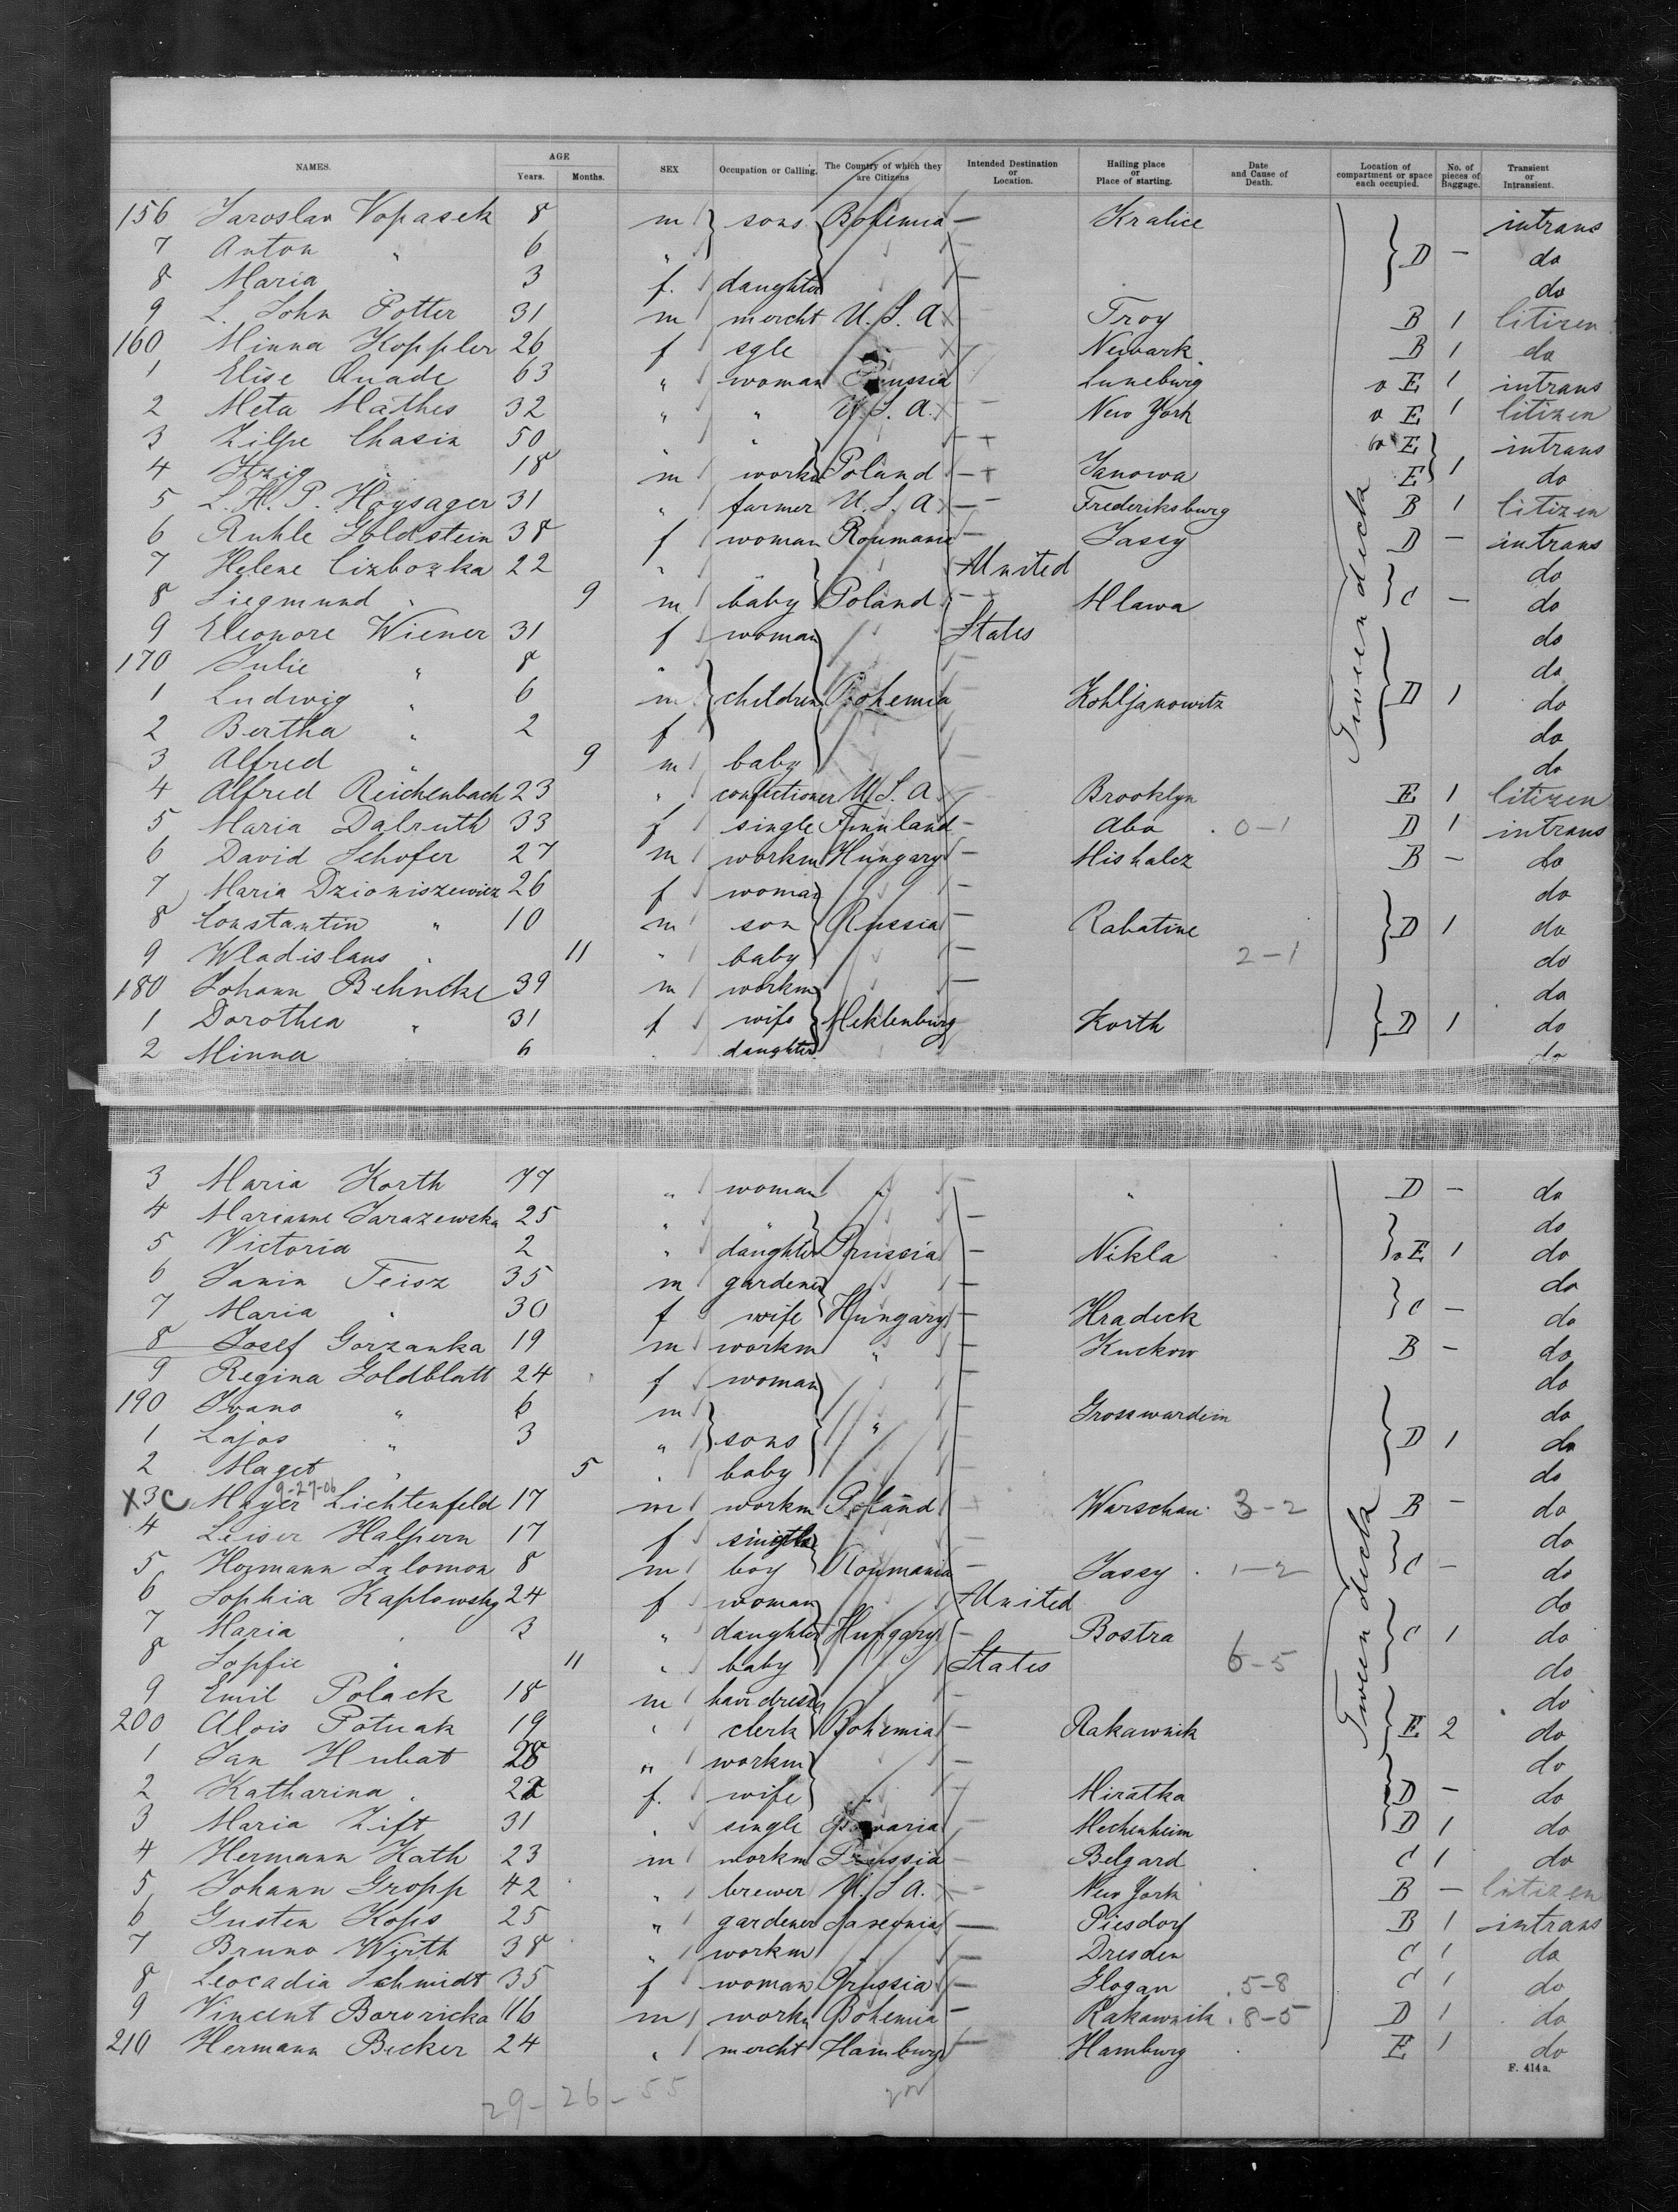 NAMES. AGE Years. Months. SEX Occupation or Calling. The Country of which they are Citizens Intended Destination or Location. Hailing place or Place of starting. Date and Cause of Death. Location of compartment or space each occupied. No. of pieces of Baggage. Transient or Intransient.
156 Jaroslav Vopasek 8 m sons Bohemia — Kralice intrans
7 Anton " 6 " D — do
8 Maria 3 f. daughter — do
9 L. John Potter 31 m mercht U.S.A. Troy B 1 Citizen
160 Minna Koppler 26 f sgle Newark B 1 do
1 Elise Quade 63 " woman Prussia Luneburg o E 1 intrans
2 Meta Mathes 32 " " U.S.A. — New York o E 1 Citizen
3 Zilpe Chasin 50 " — + o E intrans
4 Itzig 18 m workm Poland — + Janowa E 1 do
5 L.H.P. Hoysager 31 " farmer U.S.A — Frederiksburg B 1 Citizen
6 Ruhle Goldstein 38 f woman Roumania — Jassy D — intrans
7 Helene Cizbozka 22 " " United do
8 Siegmund " 9 m baby Poland — + Mlawa C — do
9 Eleonore Wiener 31 f woman States do
170 Julie " 8 " — do
1 Ludwig " 6 m children Bohemia — Kohljanowitz D 1 do
2 Bertha " 2 f — do
3 Alfred " 9 m baby — do
4 Alfred Reichenbach 23 " confectioner U.S.A. Brooklyn E 1 Citizen
5 Maria Dalruth 33 f single Finnland — Abo 0-1 D 1 intrans
6 David Schofer 27 m workm Hungary — Mishalcz B — do
7 Maria Dzioniszewicz 26 f woman — do
8 Constantin " 10 m son Russia — Rabatine D 1 do
9 Wladislaus " 11 " baby — 2-1 do
180 Johann Behncke 39 m workm — do
1 Dorothea " 31 f wife Meklenburg Korth D 1 do
2 Minna 6 daughter do
Tween deck
3 Maria Korth 77 " woman " — " D — do
4 Marianne Jarazewska 25 " " — do
5 Victoria 2 " daughter Prussia — Nikla o E 1 do
6 Janin Teisz 35 m gardener — do
7 Maria " 30 f wife Hungary — Hradeck C — do
8 Josef Gorzanka 19 m workm " — Kuckow B — do
9 Regina Goldblatt 24 f woman — do
190 Ivano " 6 m — Grosswardein do
1 Lajos " 3 " sons " D 1 do
2 Maget " 5 " baby do
9-27-06
X 3 C Meyer Lichtenfeld 17 m workm Poland + Warschau 3-2 B — do
4 Leiser Halpern 17 f single do
5 Hozmann Salomon 8 m boy Roumania — Jassy 1-2 C — do
6 Sophia Kaplowsky 24 f woman United do
7 Maria " 3 " daughter Hungary — Bostra C 1 do
8 Sopfie " 11 " baby States 6-5 do
9 Emil Polack 18 m hair dresser — do
200 Alois Potuak 19 " clerk Bohemia — Rakawnik E 2 do
1 Jan Hubat 28 " workm — do
2 Katharina " 22 f. wife — Miratka D — do
3 Maria Zift 31 " single Bavaria — Mechenheim D 1 do
4 Hermann Kath 23 m workm Prussia — Belgard C 1 do
5 Johann Gropp 42 " brewer U.S.A. — New York B — Citizen
6 Gusten Kops 25 " gardener Saxonia — Piesdorf B 1 intrans
7 Bruno Wirth 38 " workm " — Dresden C 1 do
8 Leocadia Schmidt 35 f woman Prussia — Glogau 5-8 C 1 do
9 Vincent Bororicka 16 m workm Bohemia — Rakawnik 8-5 D 1 do
210 Hermann Becker 24 " mercht Hamburg — Hamburg E 1 do
Tween deck
F. 414a.
29-26-55